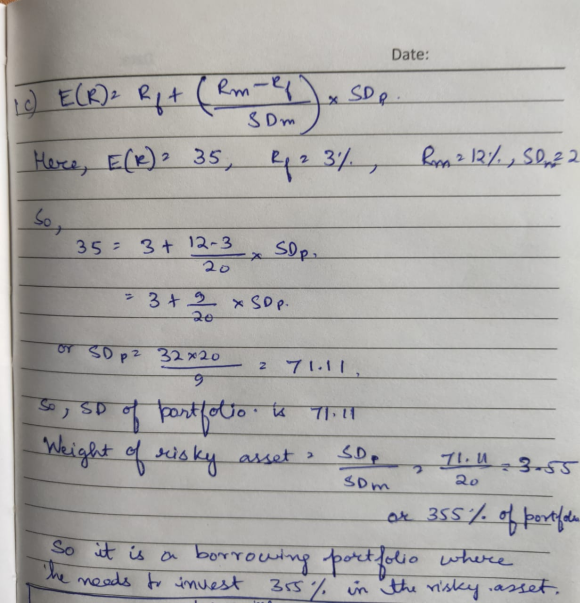 Date:
1c) E(R) = Rf + (Rm - Rf / SDm) × SDp.
Here, E(R) = 35, Rf = 3%, Rm = 12%, SDm = 2
So,
35 = 3 + 12-3 / 20 × SDp.
= 3 + 9 / 20 × SDp.
or SDp = 32×20 / 9 = 71.11.
So, SD of portfolio is 71.11
Weight of risky asset = SDp / SDm = 71.11 / 20 = 3.55
or 355% of portfo
So it is a borrowing portfolio where
he needs to invest 355% in the risky asset.